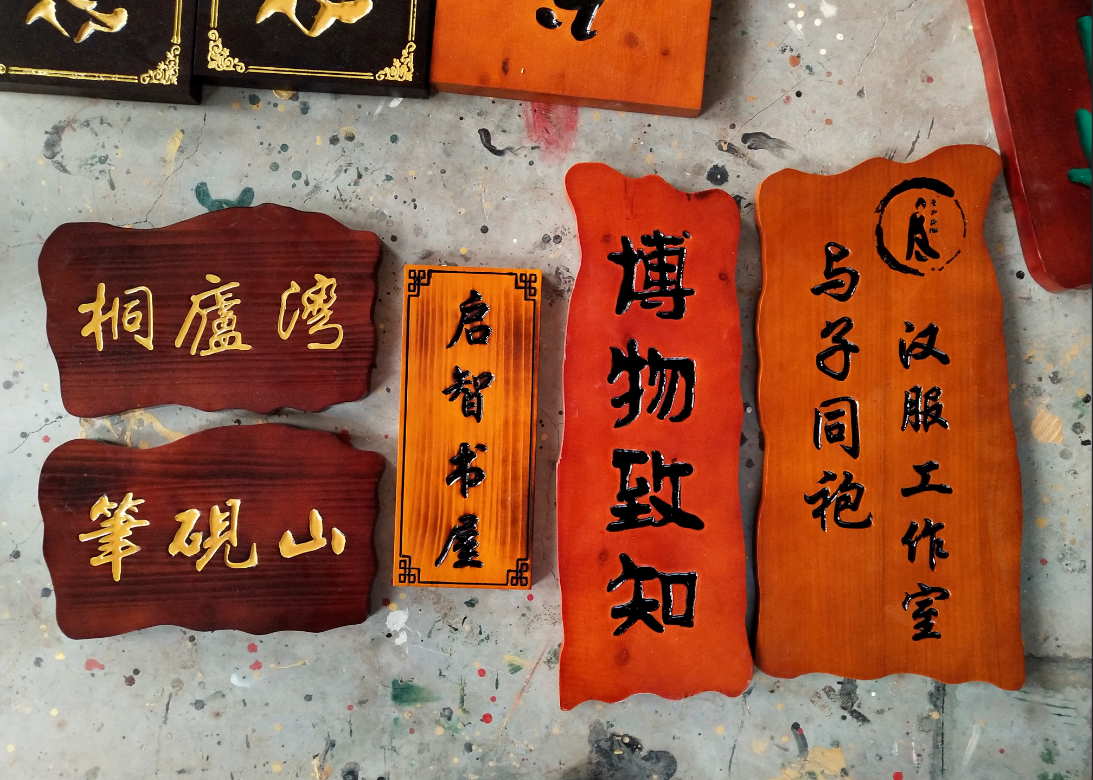 桐廬灣
筆硯山
启智书屋
博物致知
与子同袍
汉服工作室